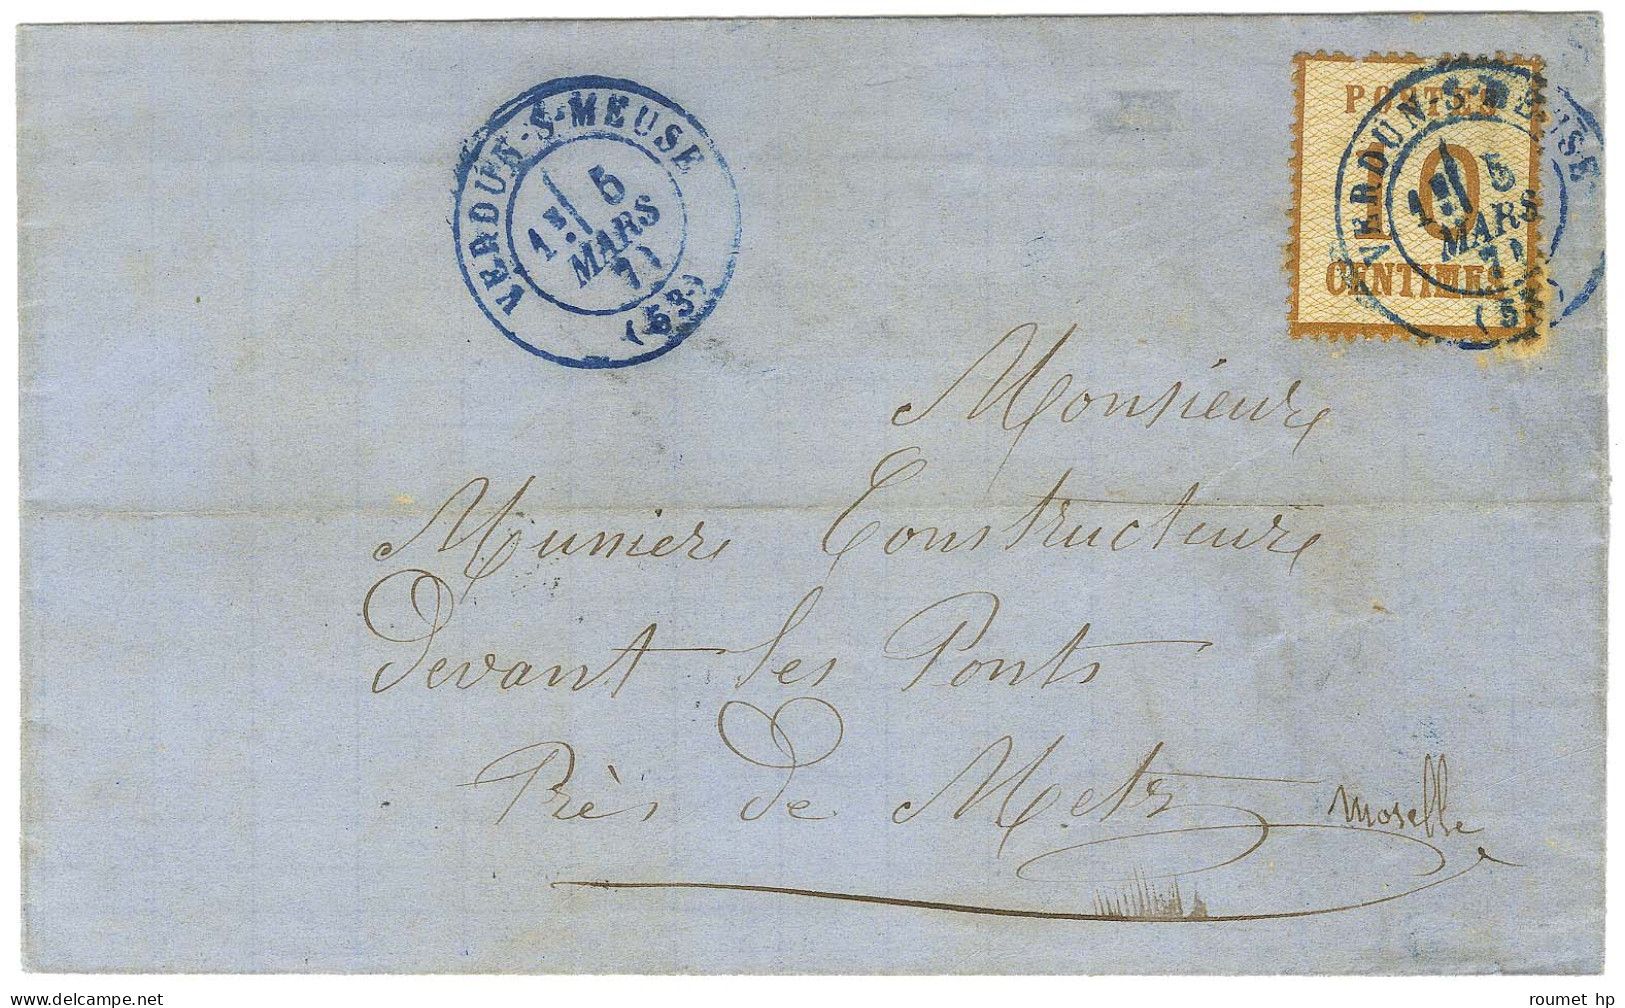 VERDUN-S-MEUSE
1E/ 5
MARS
71
(53)
POSTES
10
CENTIMES
VERDUN-S-MEUSE
1E/ 5
MARS
71
(53)
Monsieur
Munier Constructeur
Devant les Ponts
Près de Metz
Moselle
roumet hp